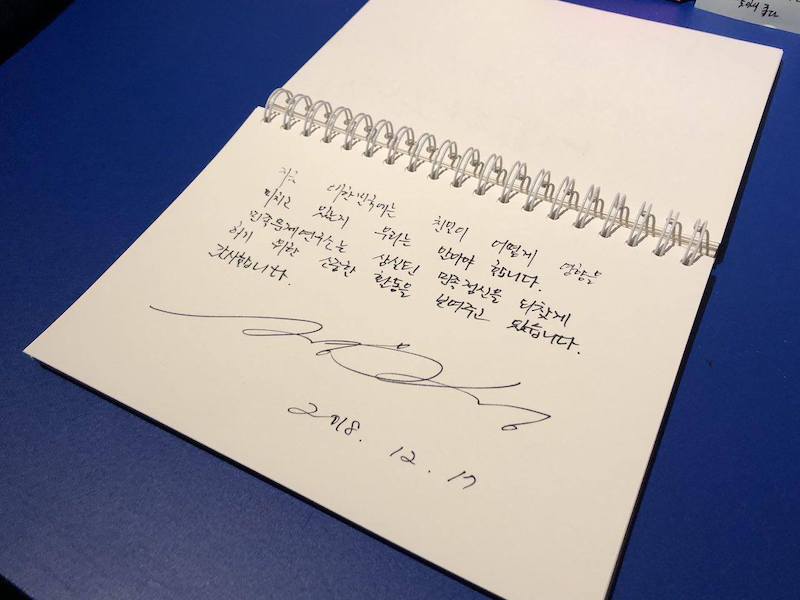 지금 대한민국에는 친일이 어떻게 영향을
미치고 있는지 우리는 알아야 합니다.
민족문제연구소는 상실된 민족정신을 되찾게
하기 위한 소중한 활동을 보여주고 있습니다.
감사합니다.
2018. 12. 17